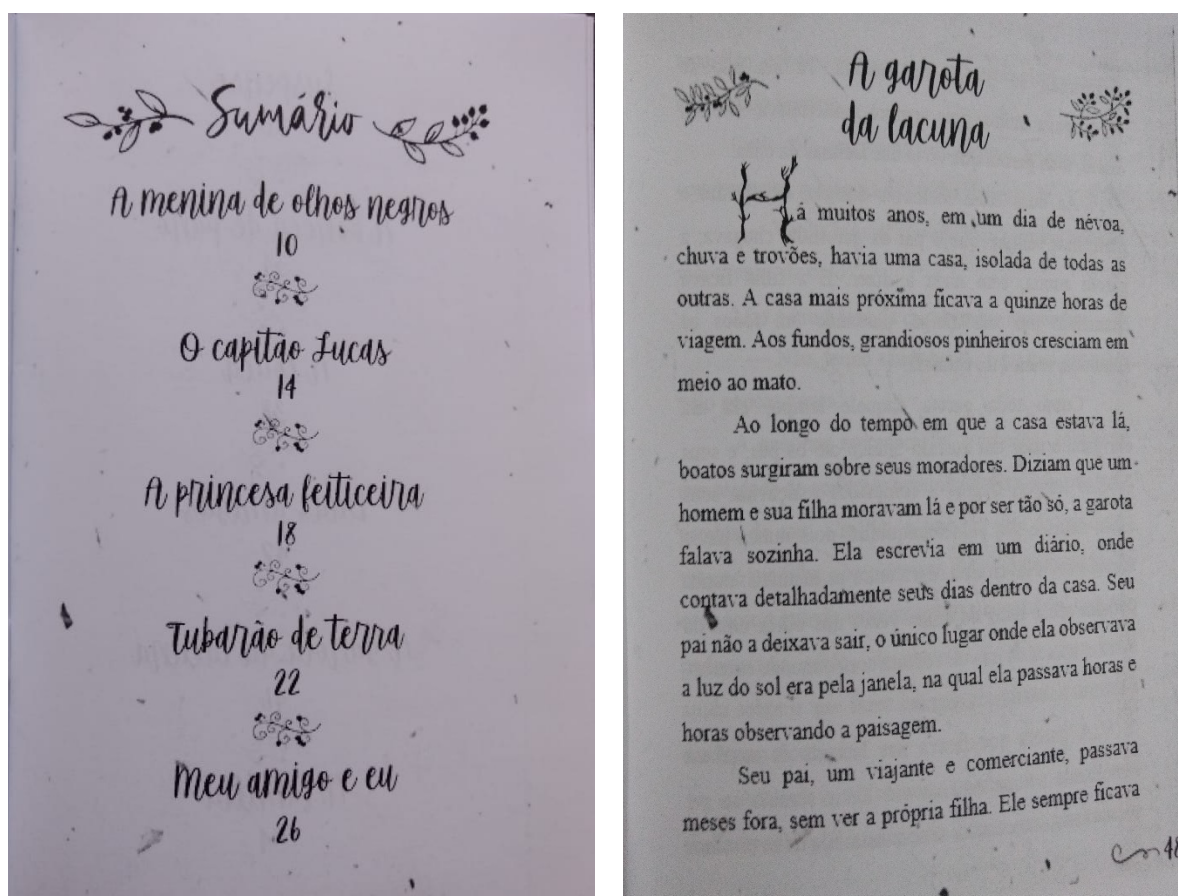 Sumário
A menina de olhos negros
10
O capitão Lucas
14
A princesa feiticeira
18
Tubarão de terra
22
Meu amigo e eu
26
A garota
da lacuna
Há muitos anos, em um dia de névoa,
chuva e trovões, havia uma casa, isolada de todas as
outras. A casa mais próxima ficava a quinze horas de
viagem. Aos fundos, grandiosos pinheiros cresciam em
meio ao mato.
Ao longo do tempo em que a casa estava lá,
boatos surgiram sobre seus moradores. Diziam que um
homem e sua filha moravam lá e por ser tão só, a garota
falava sozinha. Ela escrevia em um diário, onde
contava detalhadamente seus dias dentro da casa. Seu
pai não a deixava sair, o único lugar onde ela observava
a luz do sol era pela janela, na qual ela passava horas e
horas observando a paisagem.
Seu pai, um viajante e comerciante, passava
meses fora, sem ver a própria filha. Ele sempre ficava
48